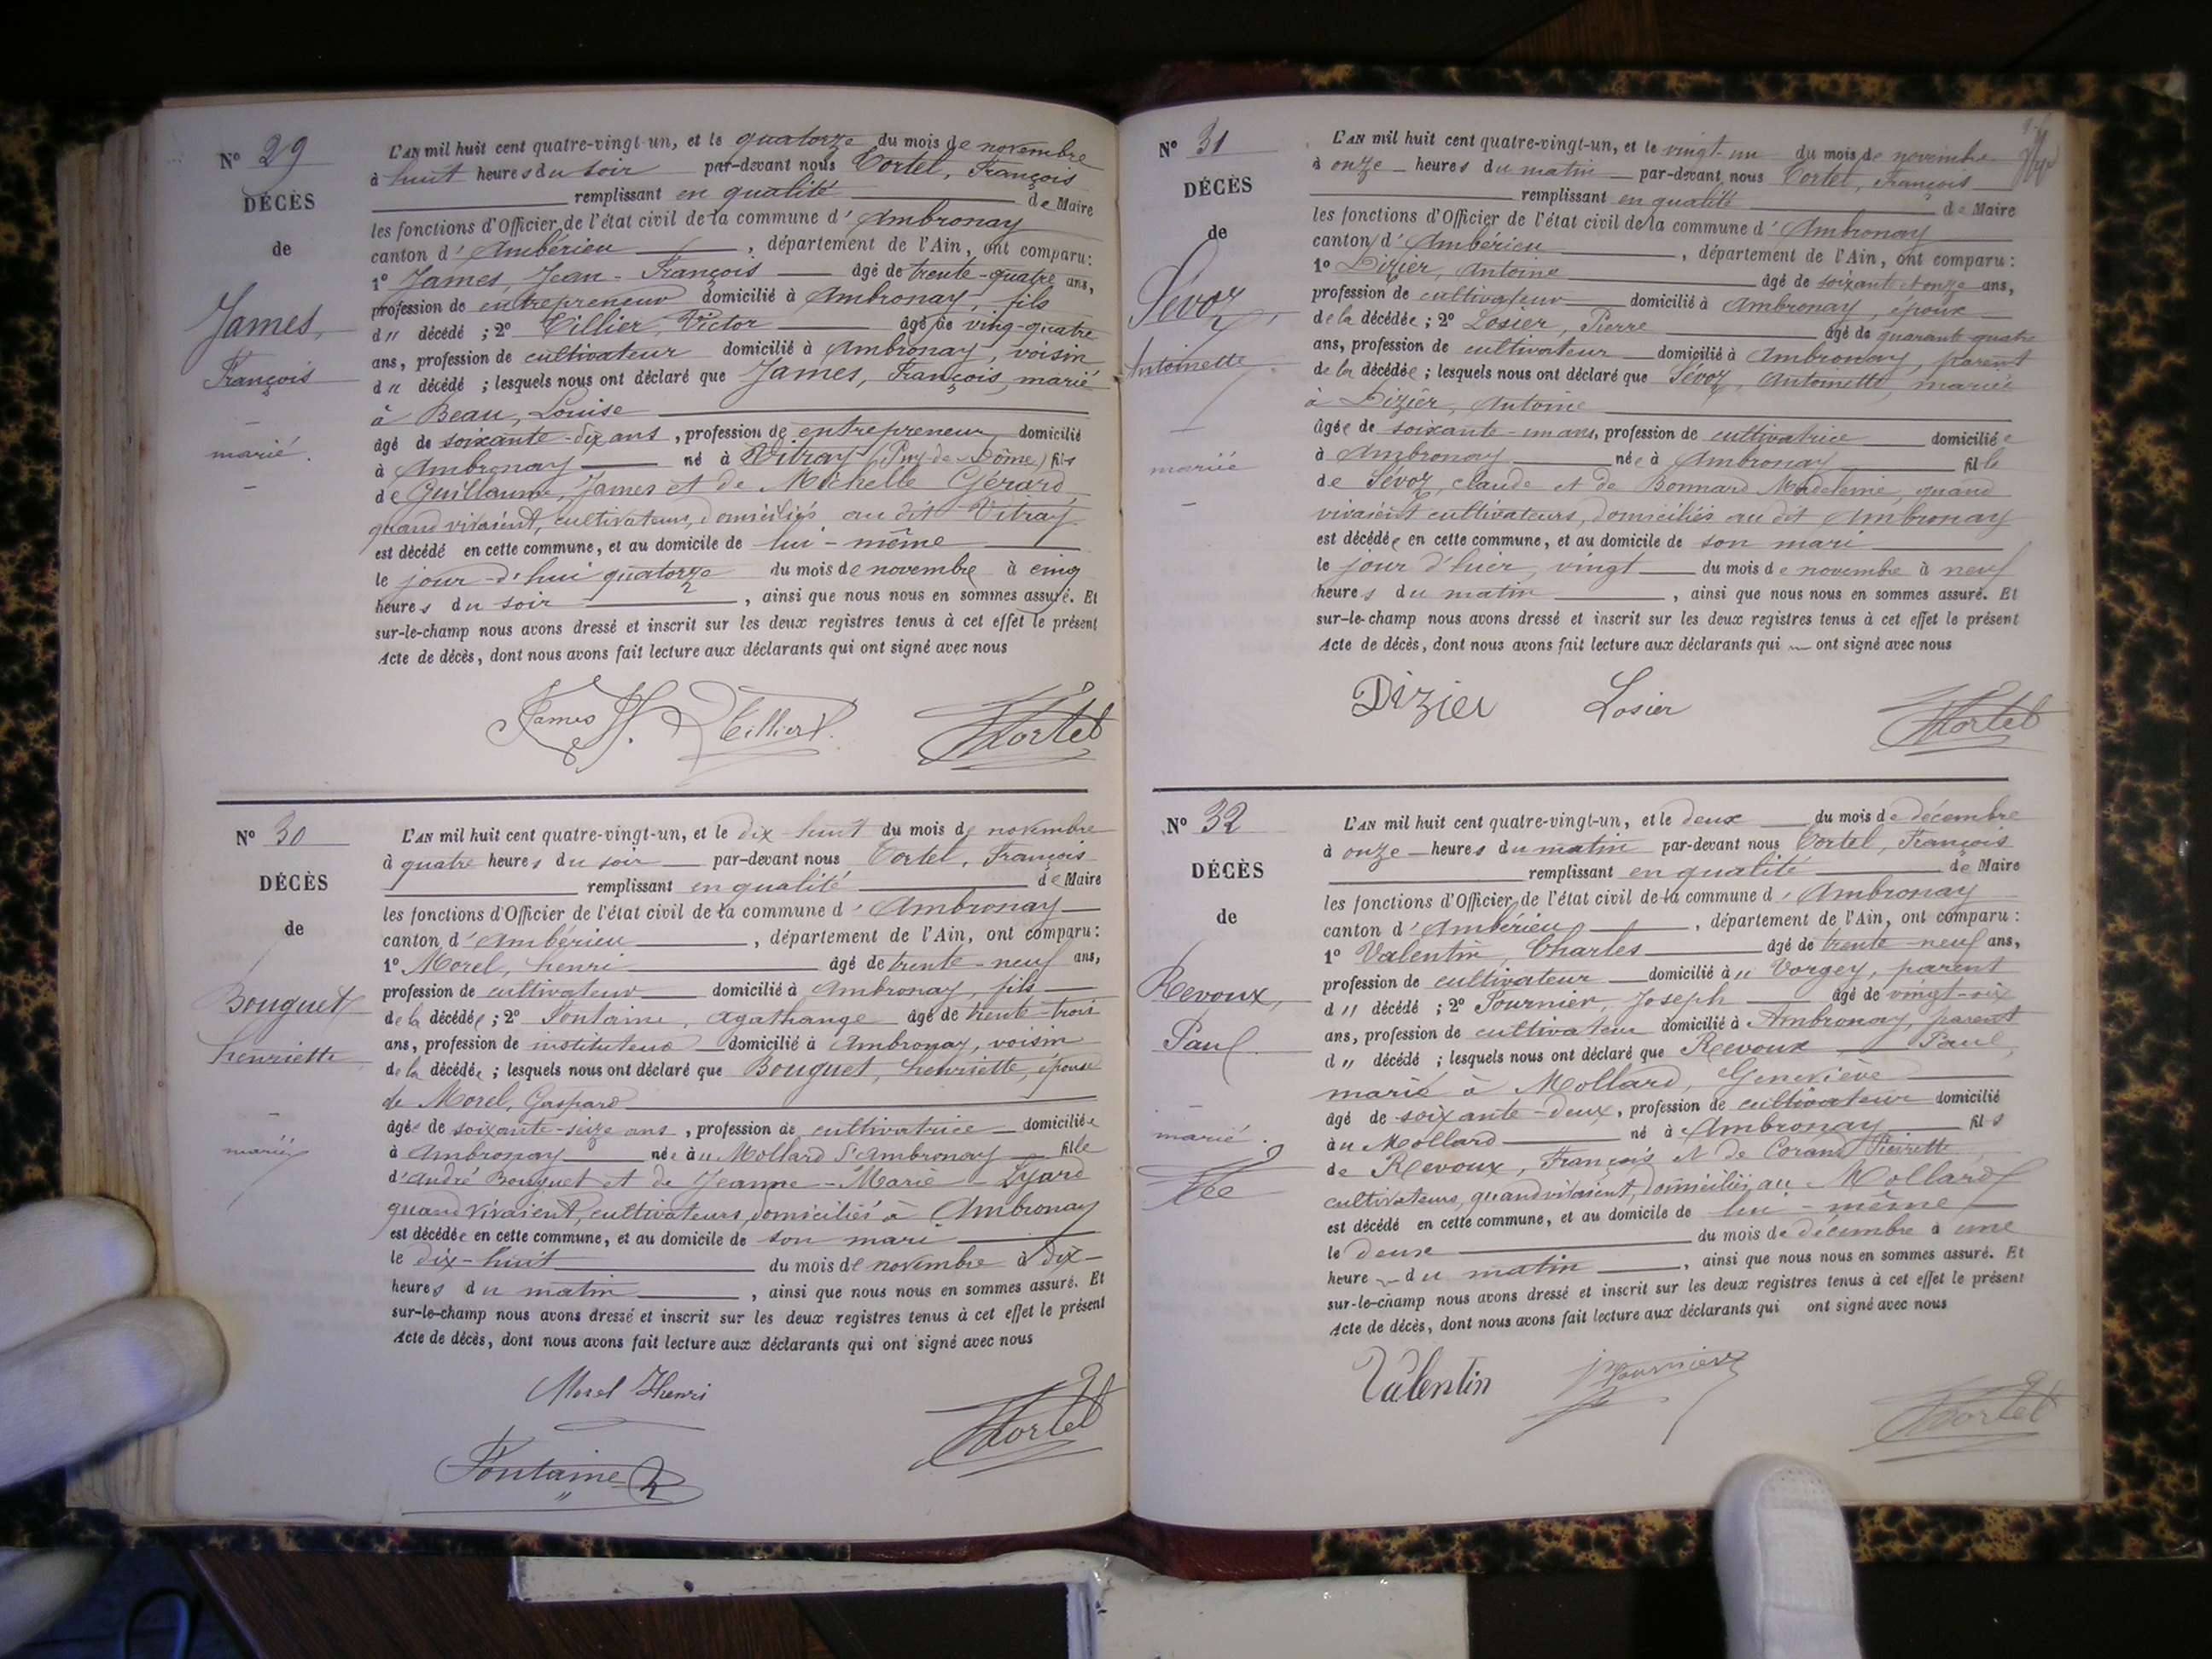 N° 29
DÉCÈS
de
James,
François
marié.
L'AN mil huit cent quatre-vingt-un, et le quatorze du mois de novembre
à huit heures du soir par-devant nous Tortel, François
remplissant en qualité de Maire
les fonctions d'Officier de l'état civil de la commune d'Ambronay
canton d'Ambérieu, département de l'Ain, ont comparu:
1° James, Jean-François âgé de trente-quatre ans,
profession de entrepreneur domicilié à Ambronay, fils
du décédé; 2° Tillier, Victor âgé de ving-quatre
ans, profession de cultivateur domicilié à Ambronay, voisin
du décédé; lesquels nous ont déclaré que James, François, marié
à Beau, Louise
âgé de soixante-dix ans, profession de entrepreneur domicilié
à Ambronay né à Vitray (Puy-de-Dôme) fils
de Guillaume, James et de Michelle Gérard
quand vivaient, cultivateurs, domiciliés au dit Vitray
est décédé en cette commune, et au domicile de lui-même
le jour-d'hui quatorze du mois de novembre à cinq
heures du soir, ainsi que nous nous en sommes assuré. Et
sur-le-champ nous avons dressé et inscrit sur les deux registres tenus à cet effet le présent
Acte de décès, dont nous avons fait lecture aux déclarants qui ont signé avec nous
James Tillier V. Tortel
N° 30
DÉCÈS
de
Bouguet
henriette
mariée
L'AN mil huit cent quatre-vingt-un, et le dix-huit du mois de novembre
à quatre heures du soir par-devant nous Tortel, François
remplissant en qualité de Maire
les fonctions d'Officier de l'état civil de la commune d'Ambronay
canton d'Ambérieu, département de l'Ain, ont comparu:
1° Morel, henri âgé de trente-neuf ans,
profession de cultivateur domicilié à Ambronay, fils
de la décédée; 2° Fontaine, Agathange âgé de trente-trois
ans, profession de instituteur domicilié à Ambronay, voisin
de la décédée; lesquels nous ont déclaré que Bouguet, henriette, épouse
de Morel, Gaspard
âgée de soixante-seize ans, profession de cultivatrice domiciliée
à Ambronay née au Mollard d'Ambronay fille
d'André Bouguet et de Jeanne-Marie Lyard
quand vivaient, cultivateurs, domiciliés à Ambronay
est décédée en cette commune, et au domicile de son mari
le dix-huit du mois de novembre à dix
heures du matin, ainsi que nous nous en sommes assuré. Et
sur-le-champ nous avons dressé et inscrit sur les deux registres tenus à cet effet le présent
Acte de décès, dont nous avons fait lecture aux déclarants qui ont signé avec nous
Morel Henri
Tortel
Fontaine
N° 31
DÉCÈS
de
Sévoz,
Antoinette
mariée
L'AN mil huit cent quatre-vingt-un, et le vingt-un du mois de novembre
à onze heures du matin par-devant nous Tortel, François
remplissant en qualité de Maire
les fonctions d'Officier de l'état civil de la commune d'Ambronay
canton d'Ambérieu, département de l'Ain, ont comparu:
1° Dizier, Antoine âgé de soixante et onze ans,
profession de cultivateur domicilié à Ambronay, époux
de la décédée; 2° Losier, Pierre âgé de quarante-quatre
ans, profession de cultivateur domicilié à Ambronay, parent
de la décédée; lesquels nous ont déclaré que Sévoz, Antoinette, mariée
à Dizier, Antoine
âgée de soixante-un ans, profession de cultivatrice domiciliée
à Ambronay née à Ambronay fille
de Sévoz, claude et de Bonnard Madeleine, quand
vivaient cultivateurs, domiciliés au dit Ambronay
est décédée en cette commune, et au domicile de son mari
le jour d'hier, vingt du mois de novembre à neuf
heures du matin, ainsi que nous nous en sommes assuré. Et
sur-le-champ nous avons dressé et inscrit sur les deux registres tenus à cet effet le présent
Acte de décès, dont nous avons fait lecture aux déclarants qui ont signé avec nous
Dizier Losier Tortel
N° 32
DÉCÈS
de
Revoux,
Paul
marié.
L'AN mil huit cent quatre-vingt-un, et le deux du mois de décembre
à onze heures du matin par-devant nous Tortel, François
remplissant en qualité de Maire
les fonctions d'Officier de l'état civil de la commune d'Ambronay
canton d'Ambérieu, département de l'Ain, ont comparu:
1° Valentin, Charles âgé de trente-neuf ans,
profession de cultivateur domicilié à Vorgey, parent
du décédé; 2° Fournier, Joseph âgé de vingt-six
ans, profession de cultivateur domicilié à Ambronay, parent
du décédé; lesquels nous ont déclaré que Revoux Paul,
marié à Mollard, Geneviève
âgé de soixante-deux, profession de cultivateur domicilié
au Mollard né à Ambronay fils
de Revoux, François et de Corand Pierrette
cultivateurs, quand vivaient, domiciliés au Mollard
est décédé en cette commune, et au domicile de lui-même
le deux du mois de décembre à une
heure du matin, ainsi que nous nous en sommes assuré. Et
sur-le-champ nous avons dressé et inscrit sur les deux registres tenus à cet effet le présent
Acte de décès, dont nous avons fait lecture aux déclarants qui ont signé avec nous
Valentin J Fournier Tortel